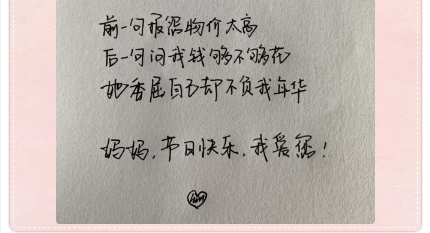 前一句报怨物价太高
后一句问我钱够不够花
她委屈自己却不负我年华
妈妈，节日快乐，我爱您！